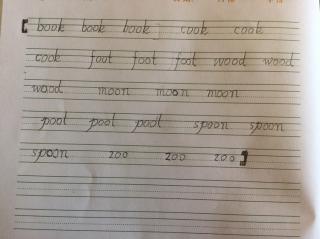 book book book cook cook
cook foot foot foot wood wood
wood moon moon moon
pool pool pool spoon spoon
spoon zoo zoo zoo